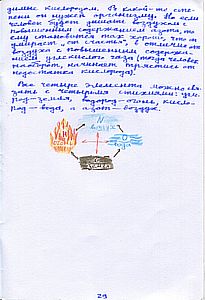 димые кислородом. В какой-то сте-
пени он нужен организму. Но если
человек будет дышать воздухом с
повышенным содержанием азота, то
ему становится так хорошо, что он
умирает "от счастья", в отличие от
воздуха с повышенным содержа-
нием углекислого газа (тогда человек
наоборот, начинает трястись от
недостатка кислорода).
Все четыре элемента можно свя-
зать с четырьмя стихиями: угле-
род - земля, водород - огонь, кисло-
род - вода, а азот - воздух.
N
воздух
H
огонь
O
вода
C
земля
29